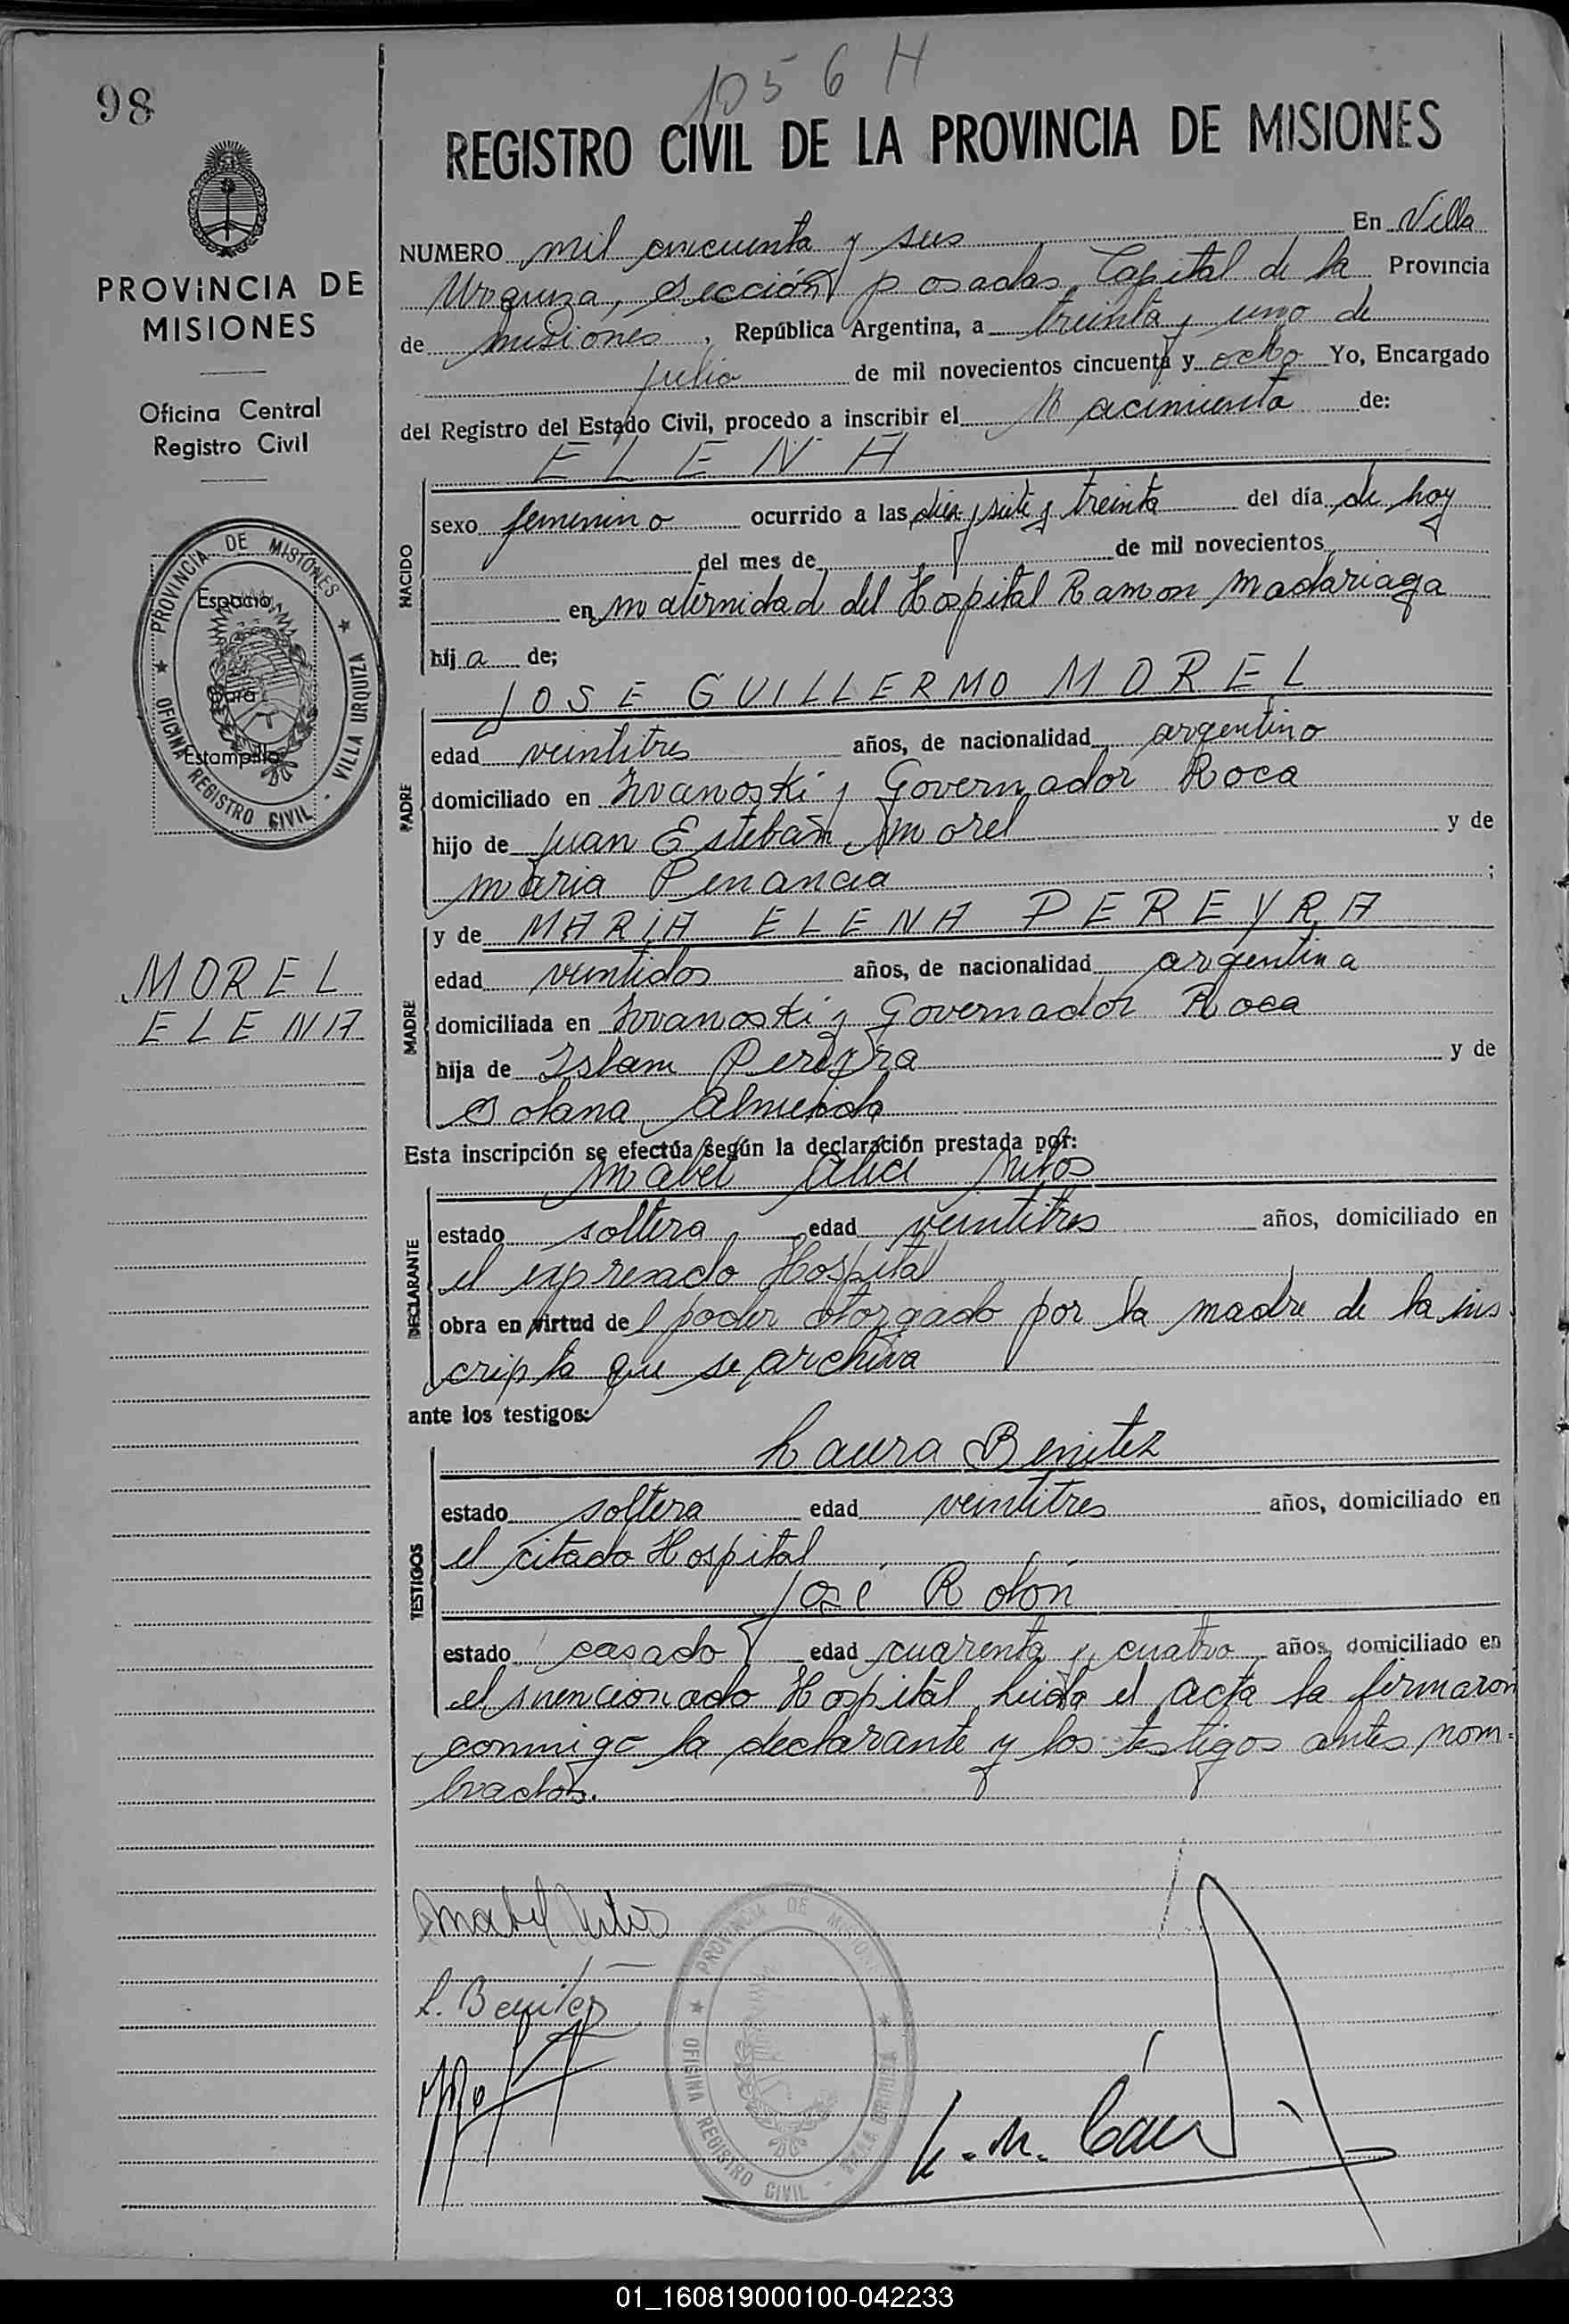 98
1056 H
PROVINCIA DE
MISIONES
Oficina Central
Registro Civil
PROVINCIA DE MISIONES
OFICINA REGISTRO CIVIL - VILLA URQUIZA
Espacio
para
Estampilla
MOREL
ELENA
REGISTRO CIVIL DE LA PROVINCIA DE MISIONES
NUMERO mil cincuenta y seis En Villa
Urquiza, sección posadas, Capital de la Provincia
de misiones, República Argentina, a treinta y uno de
julio de mil novecientos cincuenta y ocho Yo, Encargado
del Registro del Estado Civil, procedo a inscribir el Nacimiento de:
ELENA
NACIDO
sexo femenino ocurrido a las diez y siete y treinta del día de hoy
del mes de de mil novecientos
en maternidad del Hospital Ramon Madariaga
hij a de;
JOSE GUILLERMO MOREL
PADRE
edad veintitres años, de nacionalidad argentino
domiciliado en Ivanoski y Governador Roca
hijo de Juan Esteban Morel y de
maria Penancia ;
y de MARIA ELENA PEREYRA
MADRE
edad veintidos años, de nacionalidad argentina
domiciliada en Ivanoski y Governador Roca
hija de Pereyra y de
Almeida
Esta inscripción se efectúa según la declaración prestada por:
Mabel
DECLARANTE
estado soltera edad veintitres años, domiciliado en
el expresado Hospital
obra en virtud del poder otorgado por la madre de la ins
cripta que se archiva
ante los testigos:
Laura Benitez
TESTIGOS
estado soltera edad veintitres años, domiciliado en
el citado Hospital
José Rolón
estado casado edad cuarenta y cuatro años, domiciliado en
el mencionado Hospital, leida el acta la firmaron
conmigo la declarante y los testigos antes nom=
brados.
Mabel
L. Benitez
PROVINCIA DE MISIONES
OFICINA REGISTRO CIVIL - VILLA URQUIZA
01_160819000100-042233